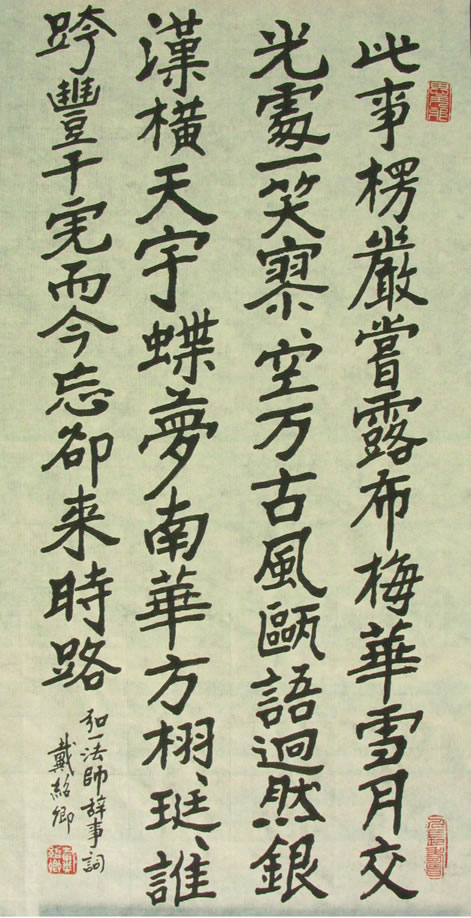 此事楞嚴嘗露布梅華雪月交
光處一笑寥、空万古風甌語迥然銀
漢橫天宇蝶夢南華方栩、珽、誰
跨豐干虎而今忘卻来時路
弘一法師辞事詞
戴紹卿